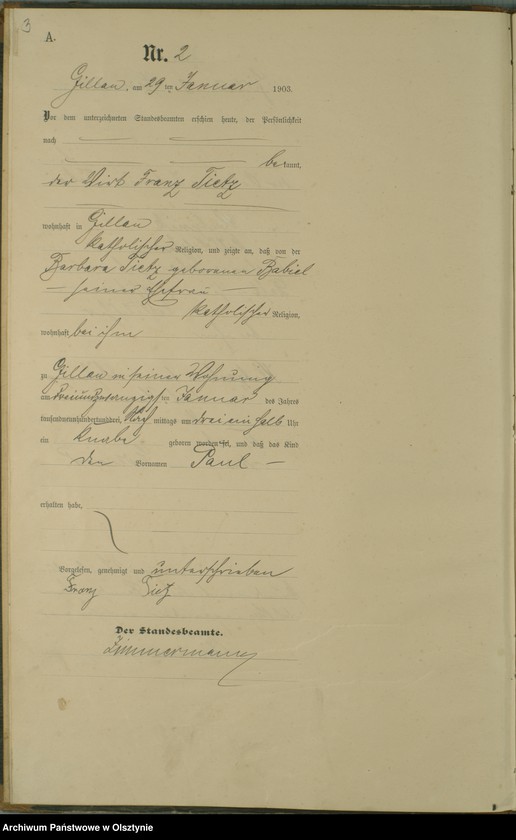 3
A.
Nr. 2
Gillau, am 29ten Januar 1903.
Vor dem unterzeichneten Standesbeamten erschien heute, der Persönlichkeit
nach
bekannt,
der Wirt Franz Tietz
wohnhaft in Gillau
katholischer Religion, und zeigte an, daß von der
Barbara Tietz geborenen Babiel
seiner Ehefrau
katholischer Religion,
wohnhaft bei ihm
zu Gillau in seiner Wohnung
am dreiundzwanzigsten Januar des Jahres
tausendneunhundertunddrei, Nachmittags um drei ein halb Uhr
ein Knabe geboren worden sei, und daß das Kind
den Vornamen Paul
erhalten habe,
Vorgelesen, genehmigt und unterschrieben
Franz Tietz
Der Standesbeamte.
Zimmermann
Archiwum Państwowe w Olsztynie